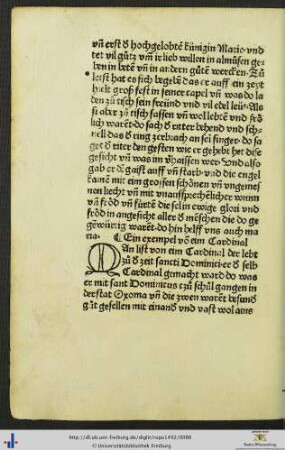 vñ erst d̕ hochgelobtē künigin Marie·vnd
tet vil gůtz vm̄ ir lieb willen in almůsen ge
ben in betē vñ in andern gůtē wercken·Zů
letst hat es sich begebē das er auff ein zeyt
hielt groß fest in seiner capel vñ was do la
den zů tisch sein freünd vnd vil edel leüt·Als
si aber zů tisch sassen vñ wol lebtē vnd frö
lich warēt·do sach d̕ riter behend vnd sch
nell das d̕ ring zerbrach an sei finger·do sa
get d̕ riter den gesten wie er gehebt het dise
gesicht vñ was im v̕haissen wer·vnd also
gab er dē gaist auff vñ starb·vnd die engel
kamē mit ein grossen schönen vñ vngemei
nen liecht vñ mit vnaussprechēlicher wunn
vñ fröd vñ fürtē die sel in ewige glori vnd
fröd in angesicht aller d̕ mēschen die do ge
gēwürtig warēt·do hin helff vns auch ma
ria· ¶ Ein exempel vō eim Cardinal
MAn list von eim Cardinal der lebt
zů d̕ zeit sancti Dominici·er d̕ selb
Cardinal gemacht ward do was
er mit sant Dominicus czů schůl gangen in
der stat Oxoma vñ die zwen warēt besund
gůt gesellen mit einand̕ vnd vast wol ains
http://dl.ub.uni-freiburg.de/diglit/rupe1492/0086
© Universitätsbibliothek Freiburg